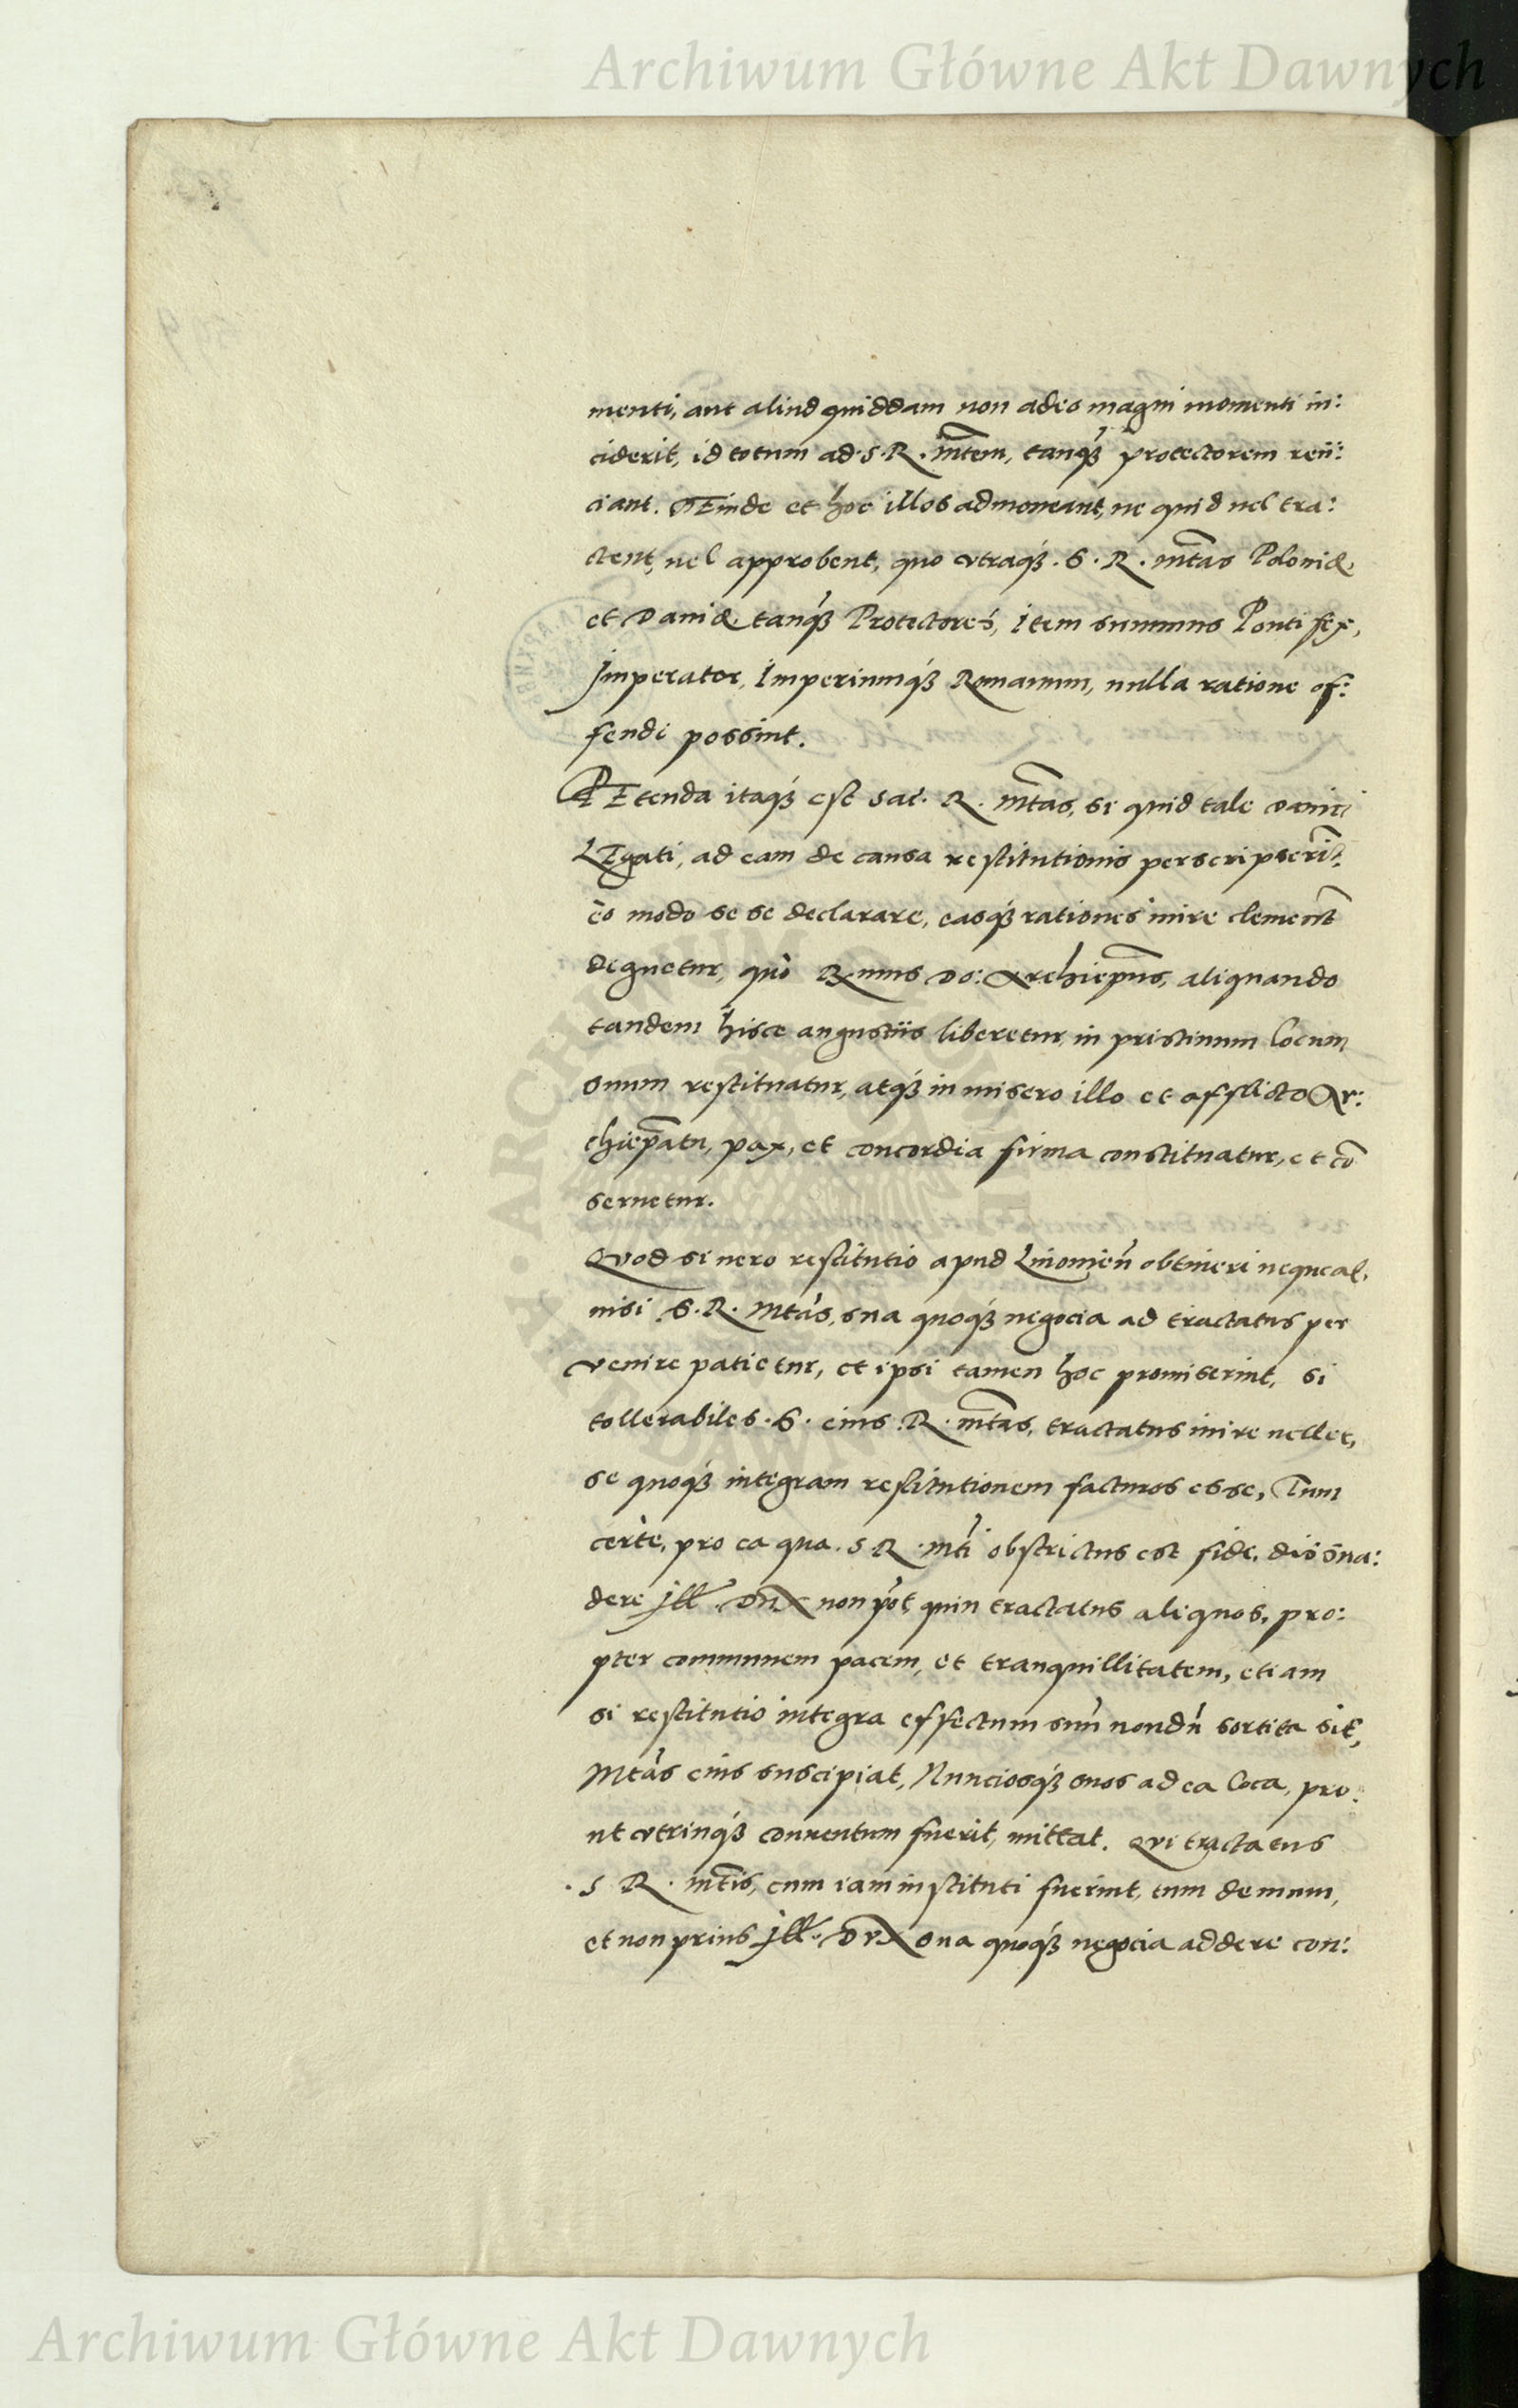 Archiwum Główne Akt Dawnych
menti, aut aliud quiddam non adeo magni momenti in:
ciderit, id totum ad. S. R. mtem, tanq̃ protectorem reij:
ciant. DEinde et hoc illos admoneant, ne quid uel tra:
ctent, uel approbent, quo vtraq́ꝫ. S. R. mtas Poloniæ
et Daniæ tanq̃ Protectores, item summus Pontifex,
Imperator, Imperiumq́ꝫ Romanum, nulla ratione of:
fendi possint.
PEtenda itaq́ꝫ est Sac. R. mtas, si quid tale Danici
LEgati, ad eam de causa restitutionis perscripserĩt:
eo modo se se declarare, easq́ꝫ rationes inire clemẽt
dignetur, quò Rmus Do: Archiep̃us, aliquando
tandem hisce angustiis liberetur, in pristinum locum
suum restituatur, atq́ꝫ in misero illo et afflicto Ar:
chiep̃atu, pax, et concordia firma constituatur, et cõ
seruetur.
QVod si uero restitutio apud Liuonieñ obtineri nequeat,
nisi S. R. Mtas, sua quoq́ꝫ negocia ad tractatus per
venire patietur, et ipsi tamen hoc promiserint, si
tollerabiles. S. eius R. mtas, tractatus inire uellet,
se quoq́ꝫ integram restitutionem facturos esse, Tum
certè, pro ea qua. S R. mti obstrictus est fide, dissua:
dere Ill. DuX non põt, quin tractatus aliquos, pro:
pter communem pacem, et tranquillitatem, etiam
si restitutio integra effectum suũ nondũ sortita sit,
Mtas eius suscipiat, Nunciosq́ꝫ suos ad ea loca, pro:
ut vtrinq́ꝫ conuentum fuerit, mittat. QVi tractatus
. S R. mtis, cum iam instituti fuerint, tum demum,
et non prius Ill. DVX sua quoq́ꝫ negocia addere con:
Archiwum Główne Akt Dawnych